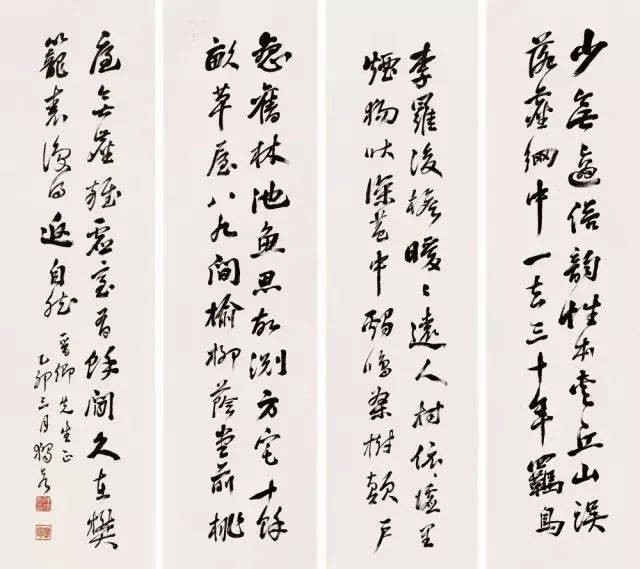 少無適俗韻性本愛丘山誤
落塵網中一去三十年羈鳥
戀舊林池魚思故淵方宅十餘
畝草屋八九間榆柳蔭堂前桃
李羅後檐暖〻遠人村依〻墟里
煙狗吠深巷中鷄鳴桑樹顛戶
庭無塵雜虛室有餘閒久在樊
籠裏復得返自然
晉卿先生正
乙卯三月獨秀